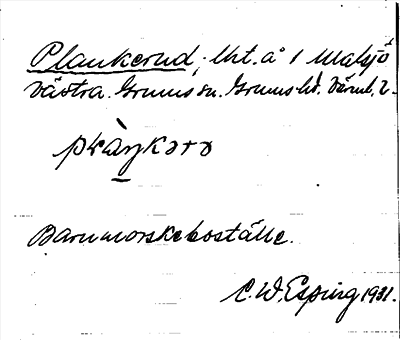 Plankerud, lht. å 1 Malsjö
västra. Grums sn. Grums hd. Värml. l.
plàŋkərə
Barnmorskeboställe.
C.W. Esping 1931.